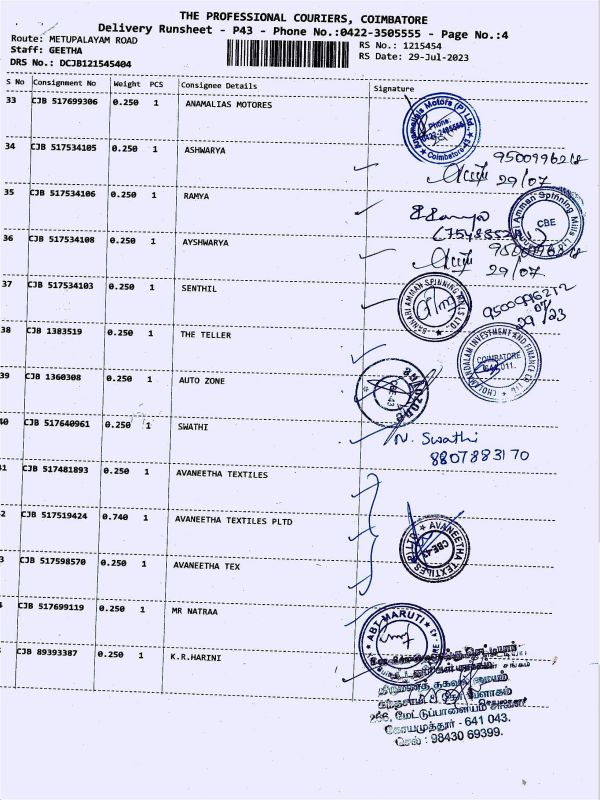 THE PROFESSIONAL COURIERS, COIMBATORE
Delivery Runsheet - P43 - Phone No.:0422-3505555 - Page No.:4
Route: METUPALAYAM ROAD RS No.: 1215454
Staff: GEETHA RS Date: 29-Jul-2023
DRS No.: DCJB121545404
S No Consignment No Weight PCS Consignee Details Signature
33 CJB 517699306 0.250 1 ANAMALIAS MOTORES
Coimbatore
34 CJB 517534105 0.250 1 ASHWARYA
29/07
35 CJB 517534106 0.250 1 RAMYA
CBE
36 CJB 517534108 0.250 1 AYSHWARYA
29/07
37 CJB 517534103 0.250 1 SENTHIL
SANKARI AMMAN SPINNING MILLS LTD.
9500996212
29/07/23
38 CJB 1383519 0.250 1 THE TELLER
CHOLAMANDALAM INVESTMENT AND FINANCE CO. LTD.
COIMBATORE
641 011.
39 CJB 1360308 0.250 1 AUTO ZONE
CBE-43
40 CJB 517640961 0.250 1 SWATHI
N. Swathi
8807883170
41 CJB 517481893 0.250 1 AVANEETHA TEXTILES
42 CJB 517519424 0.740 1 AVANEETHA TEXTILES PLTD
AVANEETHA TEXTILES (P) LTD
CBE-43
3 CJB 517598570 0.250 1 AVANEETHA TEX
CJB 517699119 0.250 1 MR NATRAA
ABT MARUTI
CJB 89393387 0.250 1 K.R.HARINI
266, மேட்டுப்பாளையம் சாலை
கோயமுத்தூர் - 641 043.
செல் : 98430 69399.